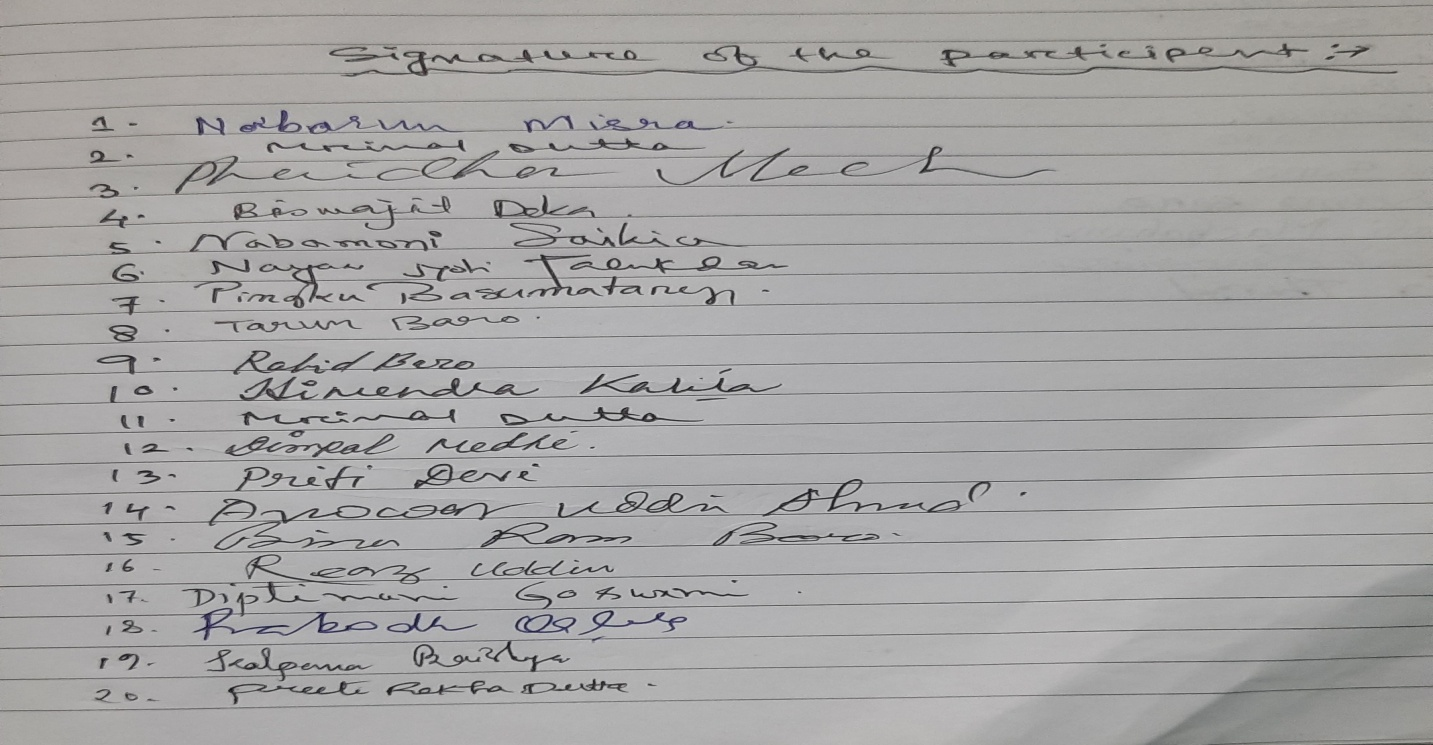 Signature of the participent :→
1. Nabarun Misra.
2. Mrinal Dutta
3. Phanidhar Mech
4. Biswajit Deka.
5. Nabamoni Saikia
6. Nayan Jyoti Talukdar
7. Pingku Basumatary.
8. Tarun Baro.
9. Rabid Boro
10. Himendra Kalita
11. Mrinal Dutta
12. Dimpal Medhi.
13. Priti Devi
14. Anowar Uddin Ahmed.
15. Ram Boro.
16. Reaz Uddin
17. Diptimani Goswami.
18. Prabodh
19. Kalpana Baishya
20. Dutta.